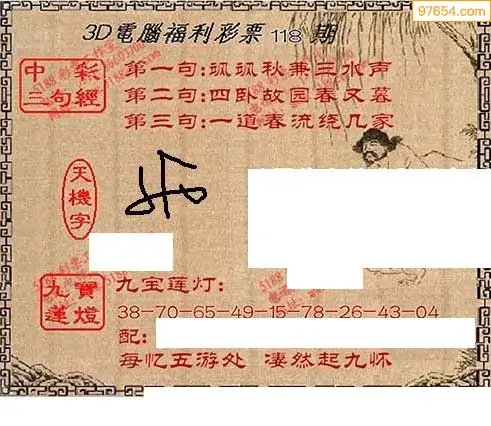 97654.com
3D電腦福利彩票118期
中彩
三句經
第一句:沨沨秋兼三水声
第二句:四卧故园春又暮
第三句:一道春流绕几家
天機字
九寶
蓮燈
九宝莲灯:
38-70-65-49-15-78-26-43-04
配:
每忆五游处 凄然起九怀